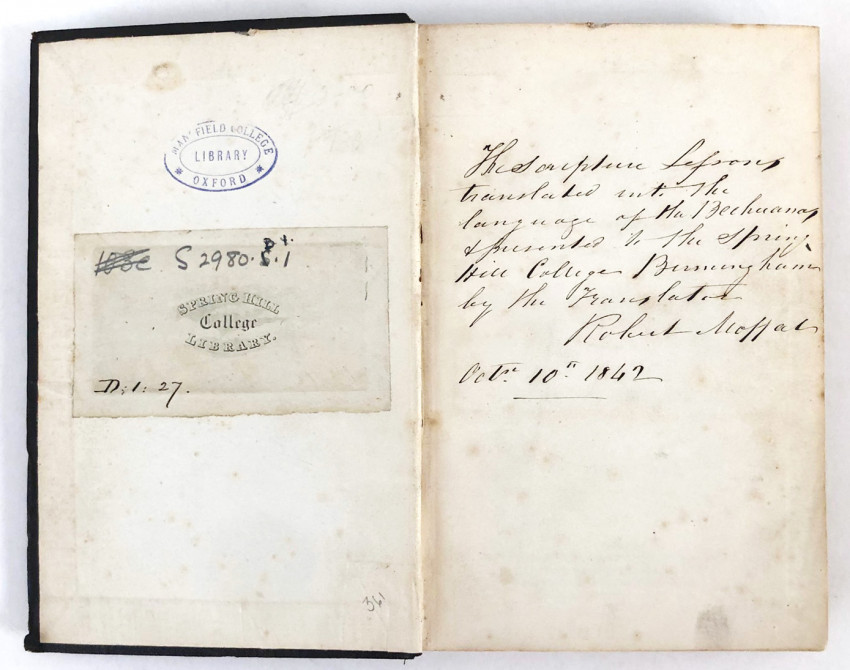 MANSFIELD COLLEGE
LIBRARY
OXFORD
S 2980.S.1
SPRING HILL
College
LIBRARY.
D:1:27.
361
The Scripture Lessons
translated into the
language of the Bechuanas
& presented to the Spring
Hill College Birmingham
by the Translator
Robert Moffat
Octr. 10th 1842